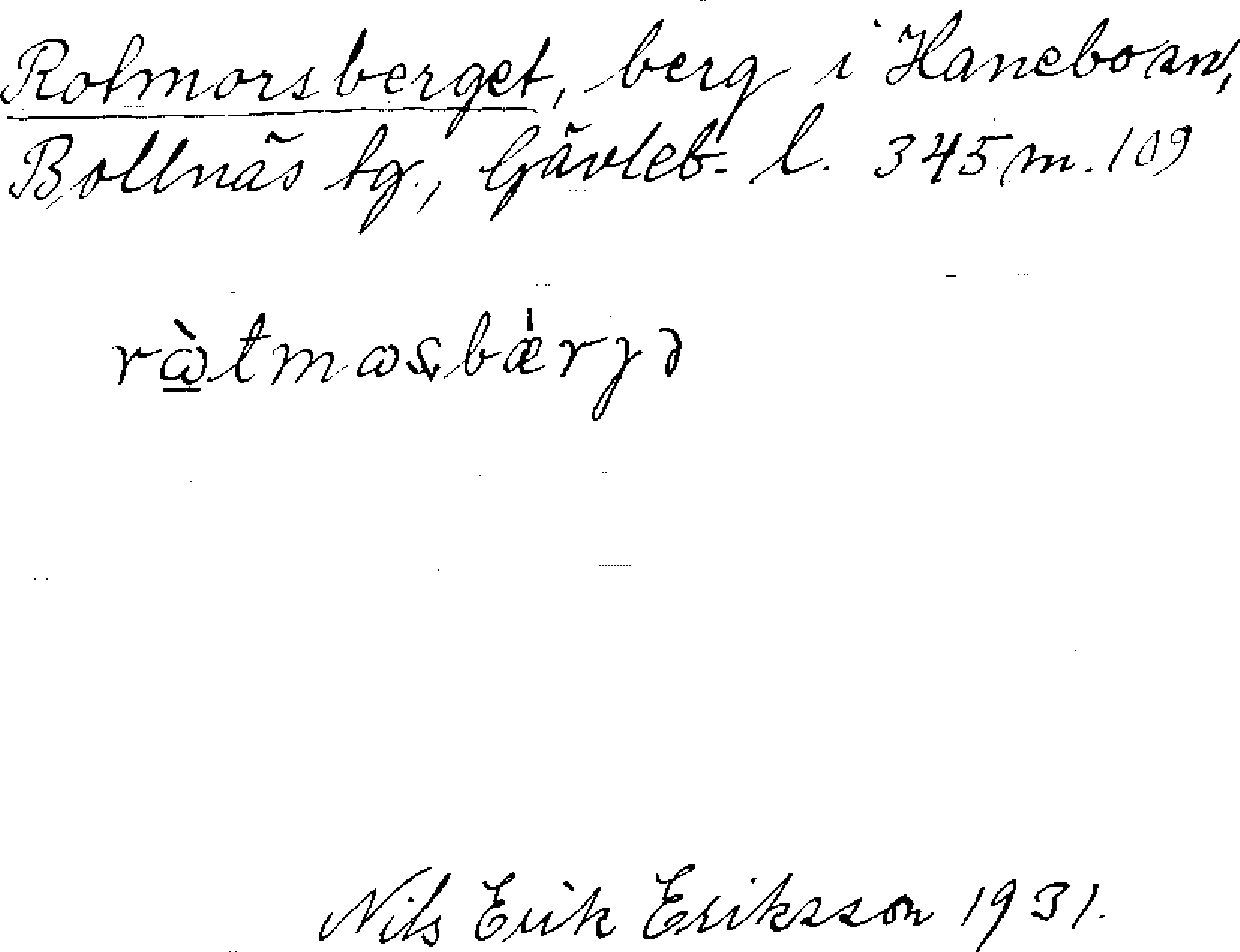 Rotmorsberget, berg i Hanebo sn,
Bollnäs tg., Gävleb. l. 345 m. 109
rⱺ̀tmⱺsbǽrgə
Nils Erik Eriksson 1931.